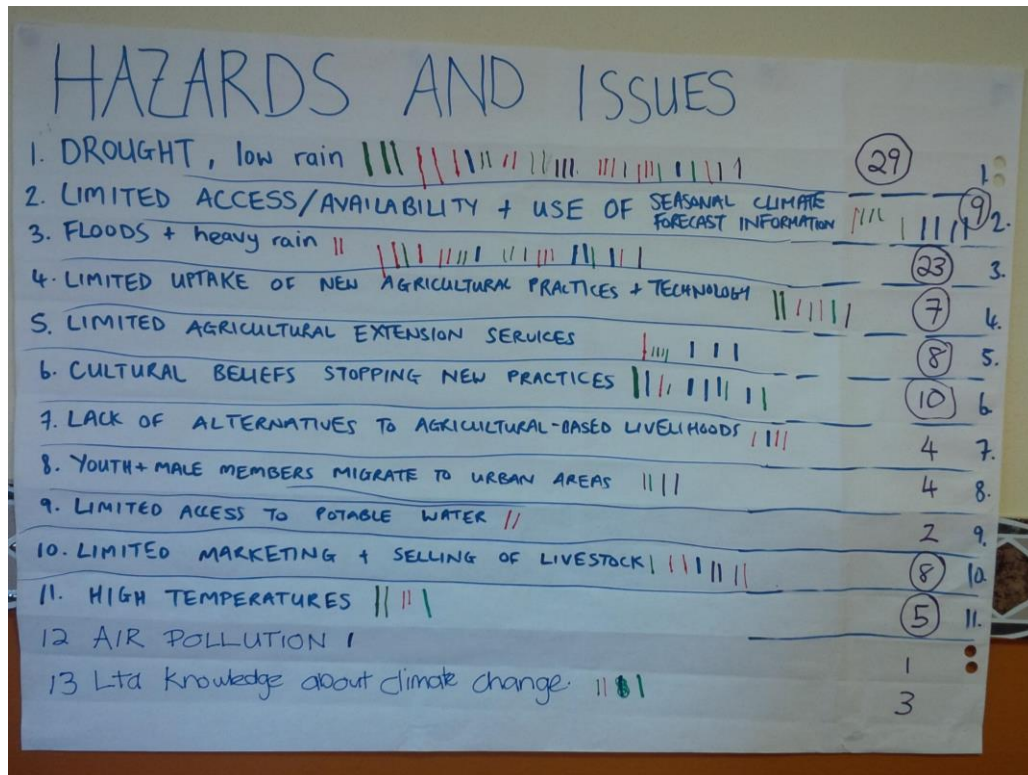 HAZARDS AND ISSUES
1. DROUGHT, low rain 29 1.
2. LIMITED ACCESS/AVAILABILITY + USE OF SEASONAL CLIMATE FORECAST INFORMATION 9 2.
3. FLOODS + heavy rain 23 3.
4. LIMITED UPTAKE OF NEW AGRICULTURAL PRACTICES + TECHNOLOGY 7 4.
5. LIMITED AGRICULTURAL EXTENSION SERVICES 8 5.
6. CULTURAL BELIEFS STOPPING NEW PRACTICES 10 6
7. LACK OF ALTERNATIVES TO AGRICULTURAL-BASED LIVELIHOODS 4 7.
8. YOUTH + MALE MEMBERS MIGRATE TO URBAN AREAS 4 8.
9. LIMITED ACCESS TO POTABLE WATER 2 9.
10. LIMITED MARKETING + SELLING OF LIVESTOCK 8 10.
11. HIGH TEMPERATURES 5 11.
12 AIR POLLUTION 1
13 Ltd knowledge about climate change. 3